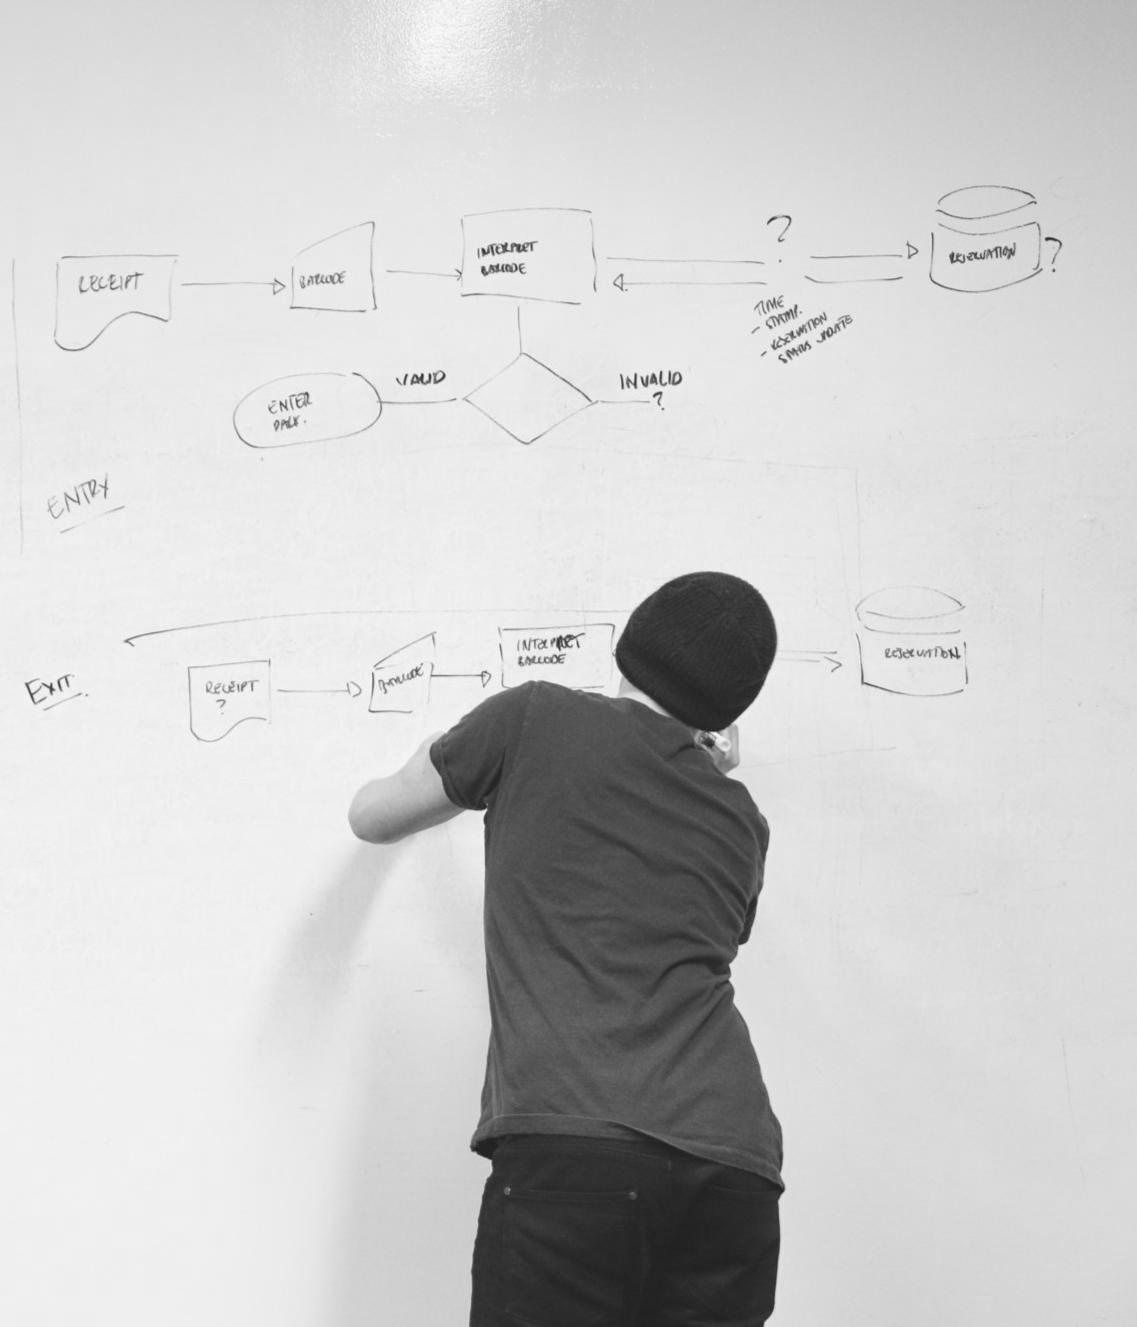 RECEIPT
BARCODE
INTERPRET
BARCODE
?
RESERVATION
?
TIME
- STAMP.
- RESERVATION
STATUS UPDATE
VALID
INVALID
?
ENTER
PARK.
ENTRY
EXIT.
RECEIPT
?
BARCODE
INTERPRET
BARCODE
RESERVATION